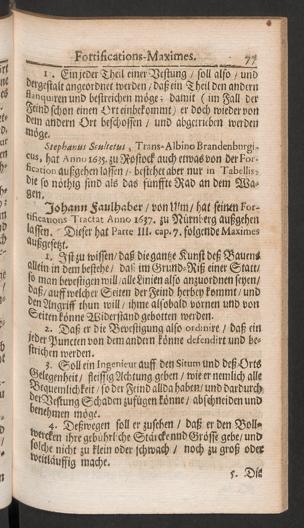 Fortifications-Maximes. 77
1. Ein jeder Theil einer Vestung / soll also / und
dergestalt angeordnet werden / daß ein Theil den andern
flanquiren und bestreichen möge; damit ( im Fall der
Feind schon einen Ort einbekommt) er doch wieder von
dem andern Ort beschossen / und abgetrieben werden
möge.
Stephanus Scultetus, Trans-Albino Brandenburgi-
cus, hat Anno 1635. zu Rostock auch etwas von der For-
tification außgehen lassen / bestehet aber nur in Tabellis,
die so nöthig sind als das fünffte Rad an dem Wa-
gen.
Johann Faulhaber / von Ulm / hat seinen For-
tifications Tractat Anno 1637. zu Nürnberg außgehen
lassen. Dieser hat Parte III. cap. 7. folgende Maximes
außgesetzt.
1. Ist zu wissen / daß die gantze Kunst deß Bauens
allein in dem bestehe / daß im Grund-Riß einer Statt /
so man bevestigen will / alle Linien also anzuordnen seyen /
daß / auff welcher Seiten der Feind herbey kommt / und
den Angriff thun will / ihme alsobald vornen und von
Seiten könne Widerstand gebotten werden.
2. Daß er die Bevestigung also ordinire / daß ein
jeder Puncten von dem andern könne defendirt und be-
strichen werden.
3. Soll ein Ingenieur auff den Situm und deß Orts
Gelegenheit / fleissig Achtung geben / wie er nemlich alle
Bequemlichkeit / so der Feind allda haben / und dardurch
der Vestung Schaden zufügen könne / abschneiden und
benehmen möge.
4. Deßwegen soll er zusehen / daß er den Boll-
wercken ihre gebührliche Stärcke und Grösse gebe / und
solche nicht zu klein oder schwach / noch zu groß oder
weitläuffig mache.
5. Die